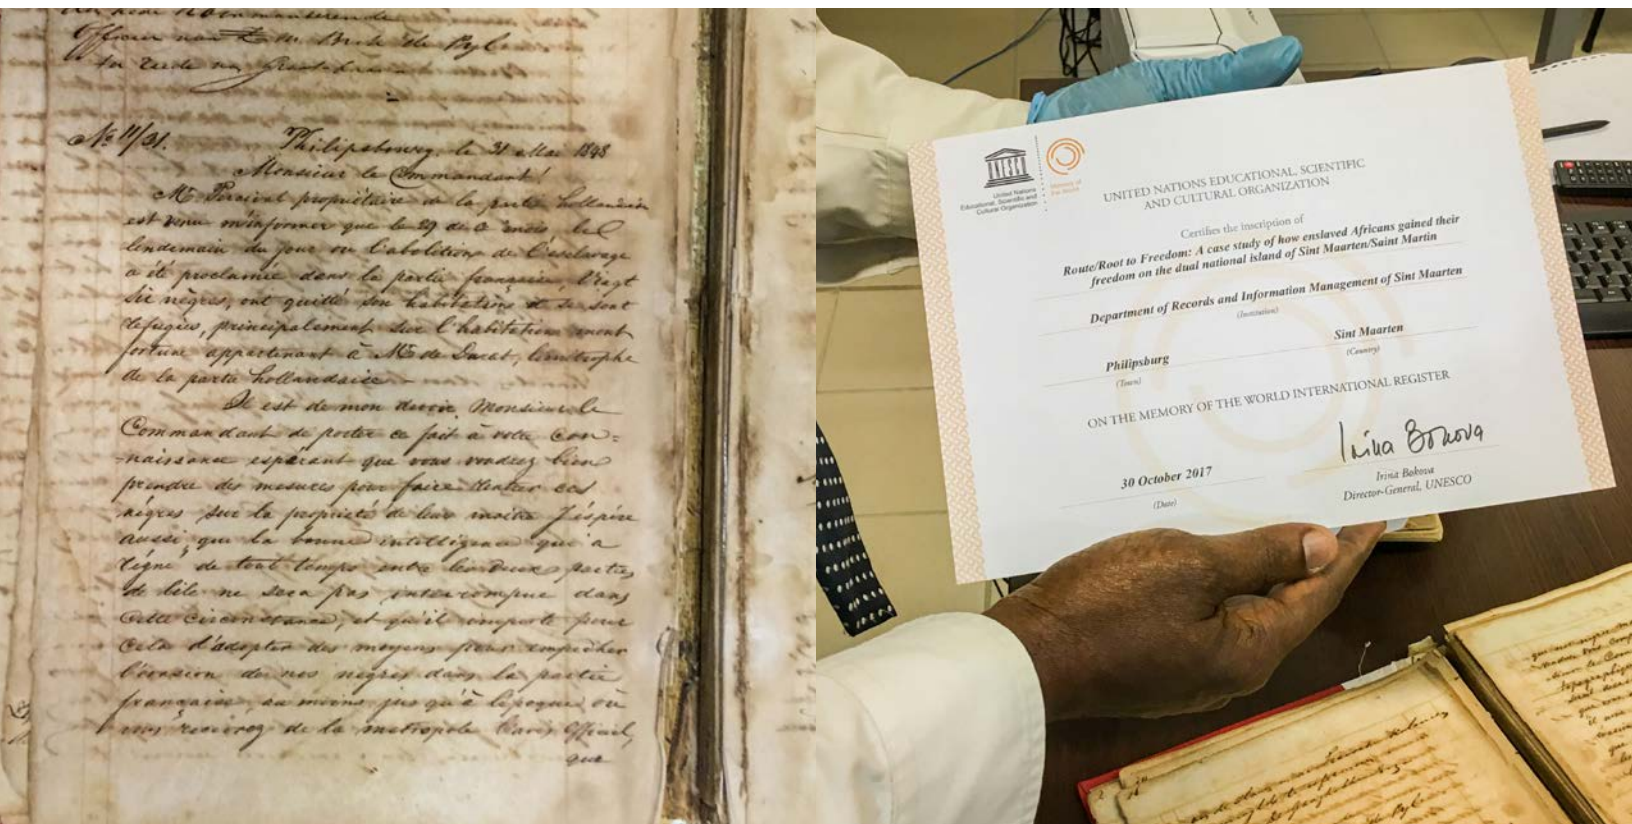 Officier van
No 11/31. Philipsbourg, le 31 Mai 1848
Monsieur le Commandant!
Mr Percival propriétaire de la partie hollandaise
est venu m'informer que le 29 de ce mois, le
lendemain du jour ou l'abolition de l'esclavage
a été proclamée dans la partie française, Vingt
six nègres, ont quitté son habitation et se sont
refugiés, principalement sur l'habitation mont
fortune appartenant à Mr de Durat, limitrophe
de la partie hollandaise.
Il est de mon devoir, Monsieur le
Commandant de porter ce fait à votre con=
naissance espérant que vous voudrez bien
prendre des mesures pour faire rentrer ces
nègres sur la propriété de leur maître J'éspère
aussi, que la bonne intelligence qui a
régné de tout temps entre les deux parties
de l'ile ne sera pas interrompue dans
cette circonstance, et qu'il importe pour
cela d'adopter des moyens pour empêcher
l'évasion de nos nègres dans la partie
française, au moins jusqu'à l'époque où
nous de la metropole l'avis officiel,
que
UNESCO
United Nations
Educational, Scientific and
Cultural Organization
Memory of
the World
UNITED NATIONS EDUCATIONAL, SCIENTIFIC
AND CULTURAL ORGANIZATION
Certifies the inscription of
Route/Root to Freedom: A case study of how enslaved Africans gained their
freedom on the dual national island of Sint Maarten/Saint Martin
Department of Records and Information Management of Sint Maarten
(Institution)
Philipsburg
Sint Maarten
(Town)
(Country)
ON THE MEMORY OF THE WORLD INTERNATIONAL REGISTER
Irina Bokova
30 October 2017
(Date)
Irina Bokova
Director-General, UNESCO